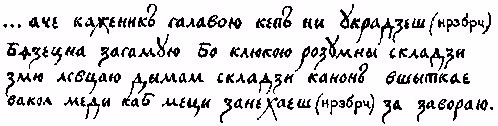 ... аче каженикъ галавою кепъ ни украдзеш (нрзбрч)
Бязецна загамую Бо клюкою розумны складзи
змю левцаю дымам складзи канонъ вшыткае
вакол меди каб меци занехаеш (нрзбрч) за завораю.